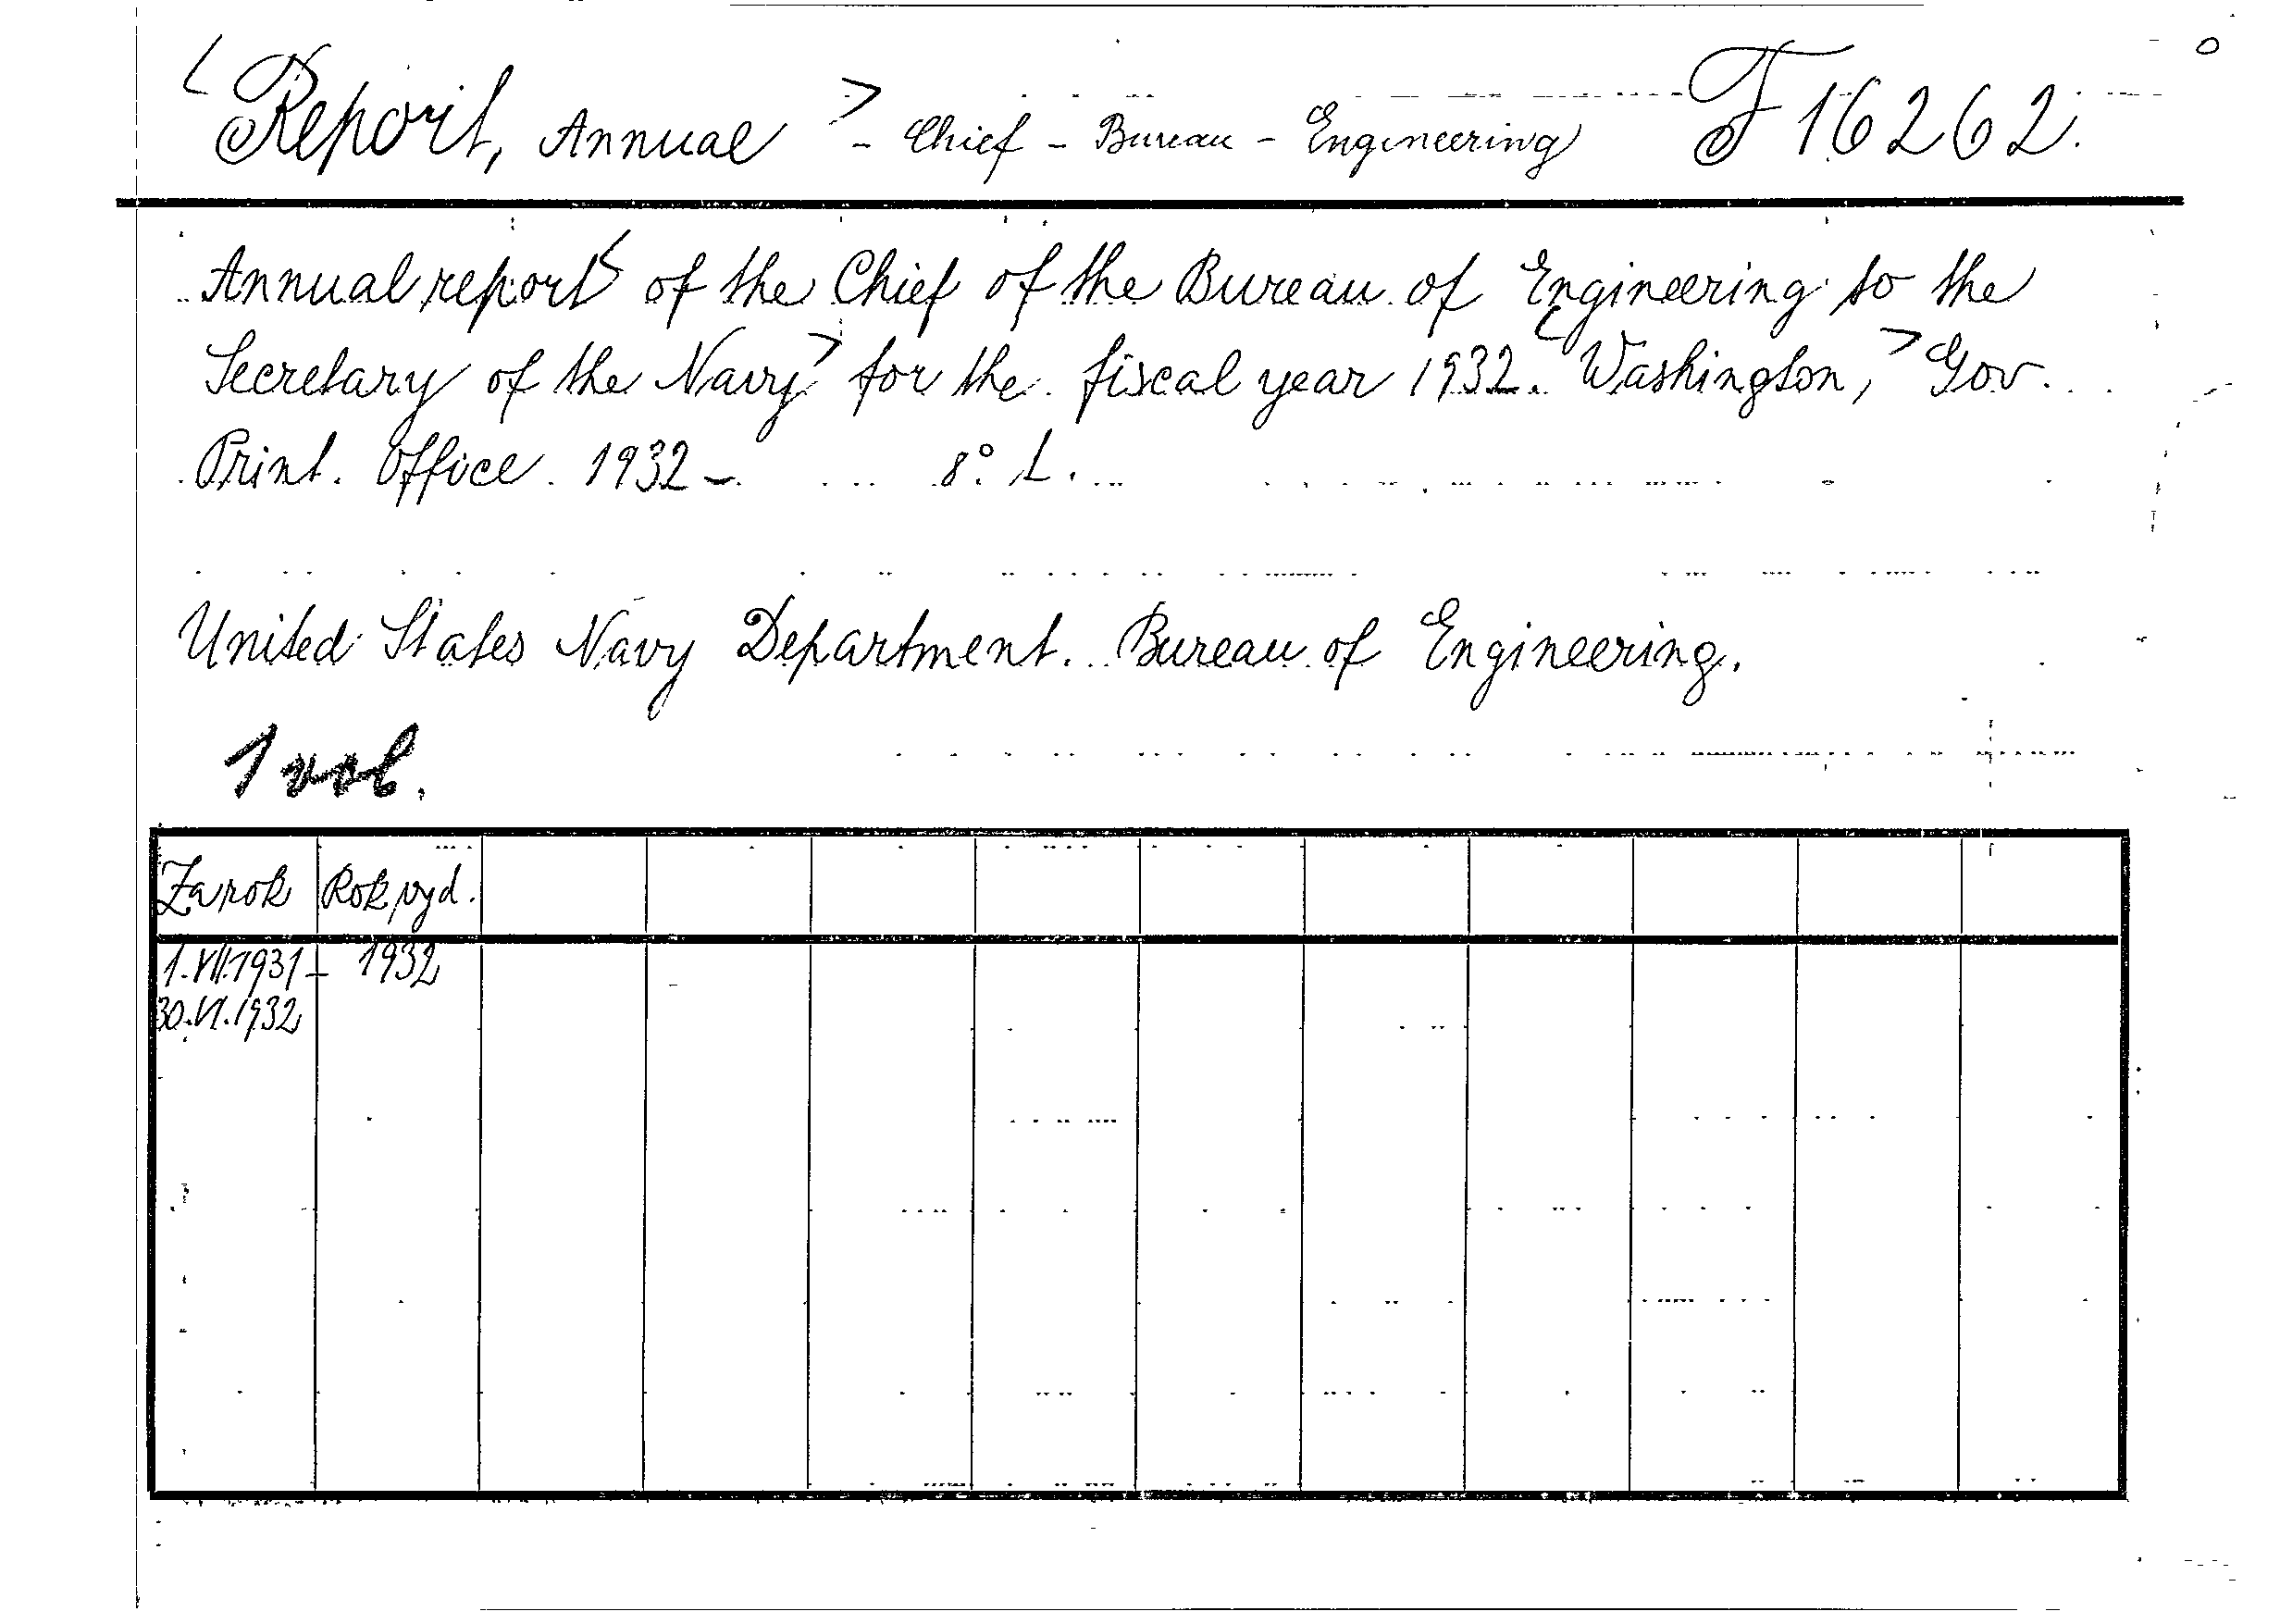 <Report, Annual> - Chief - Bureau - Engineering F 16262.
Annual report< of the Chief of the Bureau of Engineering to the
Secretary of the Navy> for the fiscal year 1932. <Washington,> Gov.
Print. Office. 1932 - 8° L.
United States Navy Department. Bureau of Engineering.
1 vol.
Za rok Rok vyd.
1.VII.1931 - 1932
30.VI.1932